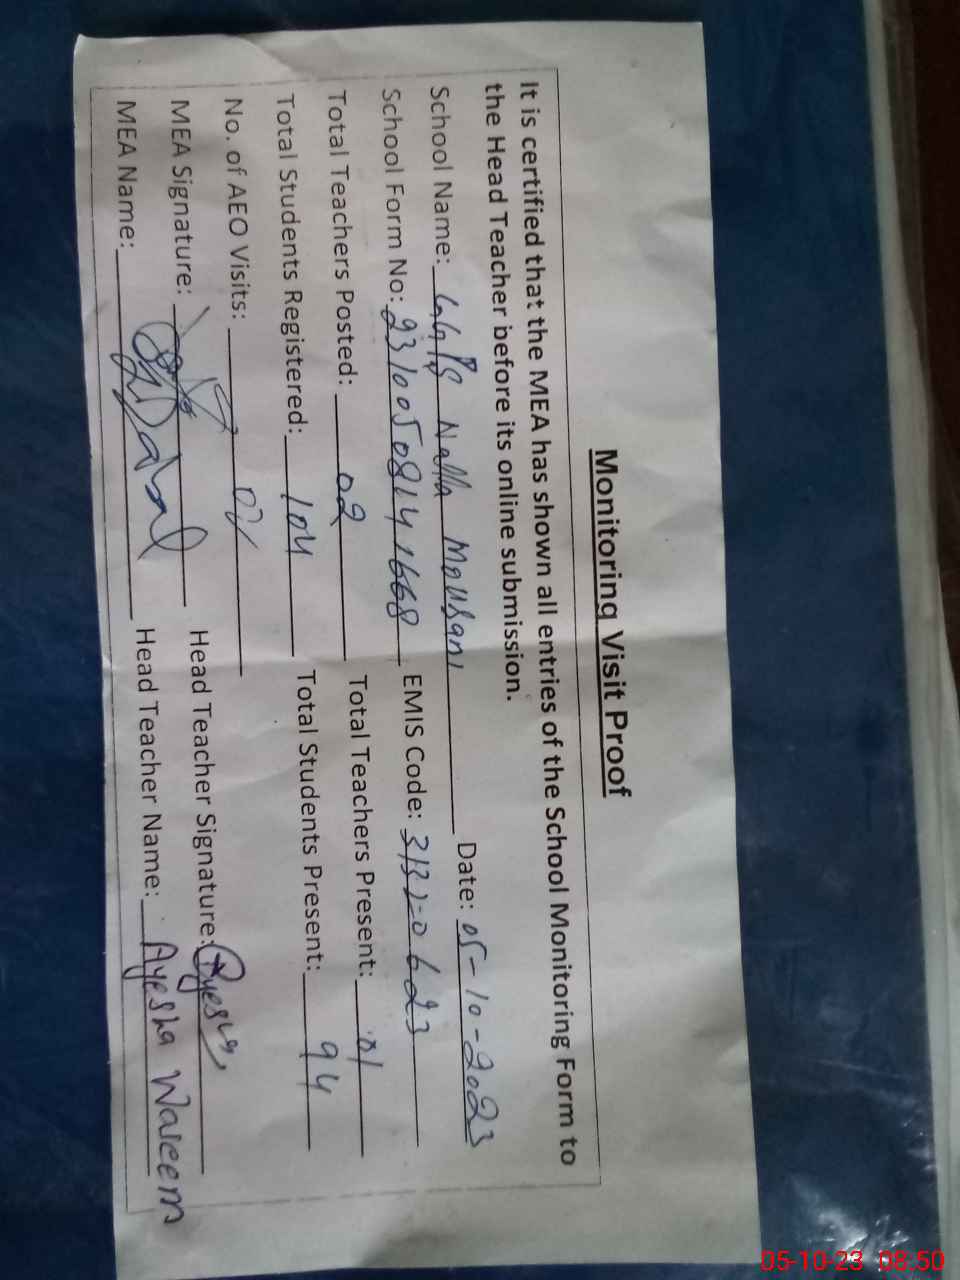 Monitoring Visit Proof
It is certified that the MEA has shown all entries of the School Monitoring Form to
the Head Teacher before its online submission.
School Name: GGPS Nalla Mousani Date: 05-10-2023
School Form No: 23100508141668 EMIS Code: 31320623
Total Teachers Posted: 02 Total Teachers Present: 01
Total Students Registered: 104 Total Students Present: 94
No. of AEO Visits: 02
MEA Signature: Head Teacher Signature: Ayesha
MEA Name: Head Teacher Name: Ayesha Waseem
05-10-23 08:50